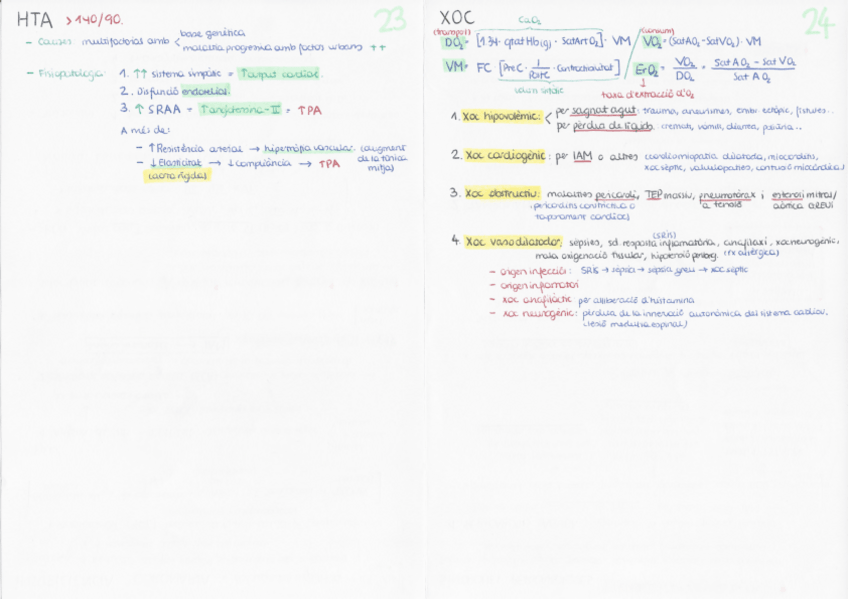 HTA >140/90. 23
- Causes multifactorias amb < base genètica
malaltia progressiva amb factors urbans ++
- Fisiopatologia: 1. ↑↑ sistema simpàtic = ↑output cardíac.
2. Disfunció endotelial.
3. ↑ SRAA = ↑angiotensina-II = ↑PA
A més de:
- ↑ Resistència arterial → hipertròfia vascular (augment de la túnica mitja)
- ↓ Elasticitat → ↓ compliància → ↑PA
(aorta rígida)
XOC 24
CaO₂
(transport) (consum)
DO₂ = [1'34 · gratHb(g) · SatArtO₂] · VM / VO₂ = (SatAO₂ - SatVO₂) · VM
VM = FC [PreC · 1/PostC · Contractilitat] / ErO₂ = VO₂/DO₂ = SatAO₂ - SatVO₂/SatAO₂
volum sistòlic
taxa d'extracció d'O₂
1. Xoc hipovolèmic: < per sagnat agut: trauma, aneurismes, emb. ectòpic, fístules..
per pèrdua de líquids. cremats, vòmits, diarrea, poliúria..
2. Xoc cardiogènic: per IAM o altres (cardiomiopatia dilatada, miocarditis,
xoc sèptic, valvulopaties, contusió miocàrdica)
3. Xoc obstructiu: malalties pericardi, TEP massiu, pneumotòrax a tensió i estenosi mitral/aòrtica GREU
(pericarditis constrictiva o
taponament cardíac)
4. Xoc vasodilatador: sèpsies, sd. resposta inflamatòria, (SRIS) anafilaxi, xoc neurogènic,
mala oxigenació tissular, hipotensió prolong. (rx al·lèrgica)
- origen infecciós: SRIS → sèpsia → sèpsia greu → xoc sèptic
- origen inflamatori
- xoc anafilàctic per alliberació d'histamina
- xoc neurogènic: pèrdua de la innervació autonòmica del sistema cardiov.
(lesió medul·la espinal)